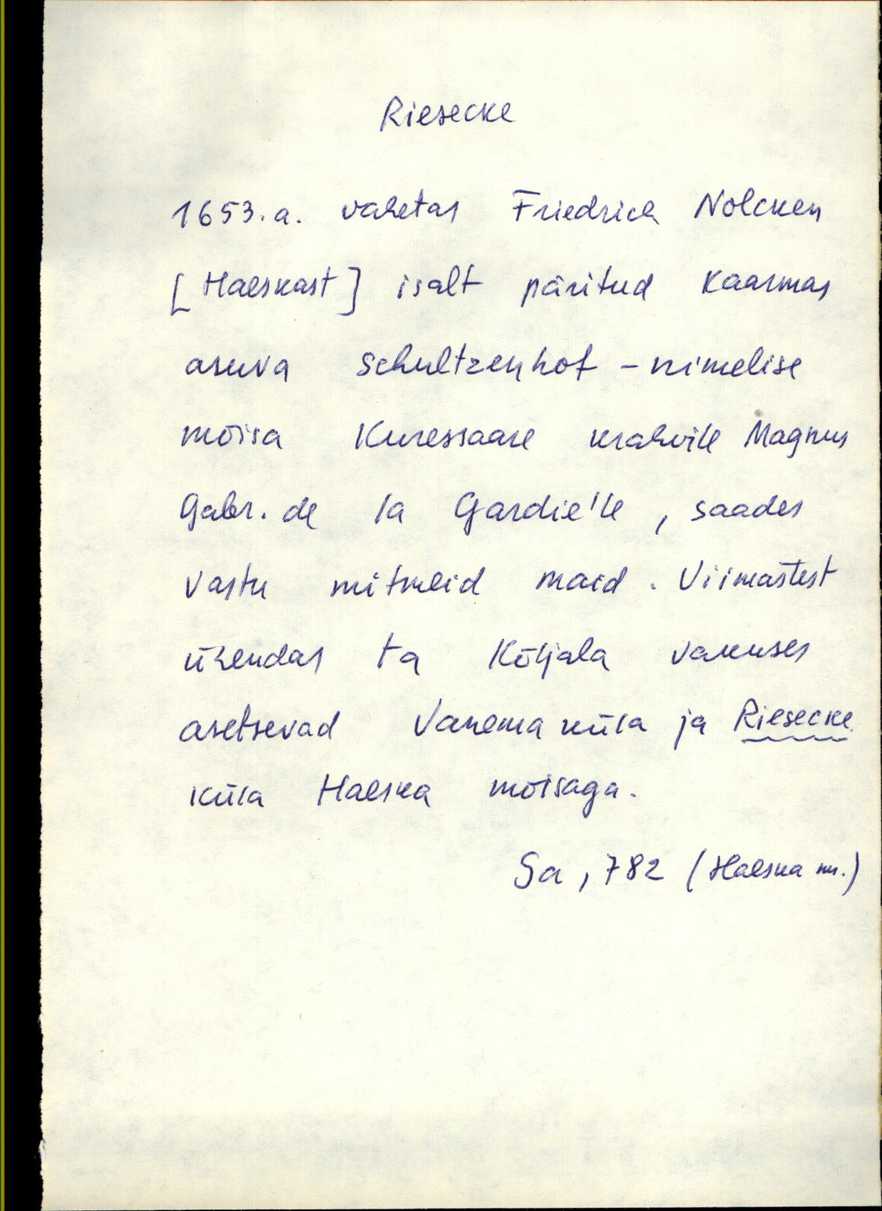 Riesecke
1653.a. vahetas Friedrich Nolcken
[Haeskast] isalt päritud Kaarmas
asuva Schultzenhof - nimelise
mõisa Kuressaare krahvile Magnus
Gabr. de la Gardie'le, saades
vastu mitmeid maid. Viimastest
ühendas ta Kõljala vakuses
asetsevad Vanema küla ja Riesecke
küla Haeska mõisaga.
Sa, 782 (Haeska m.)